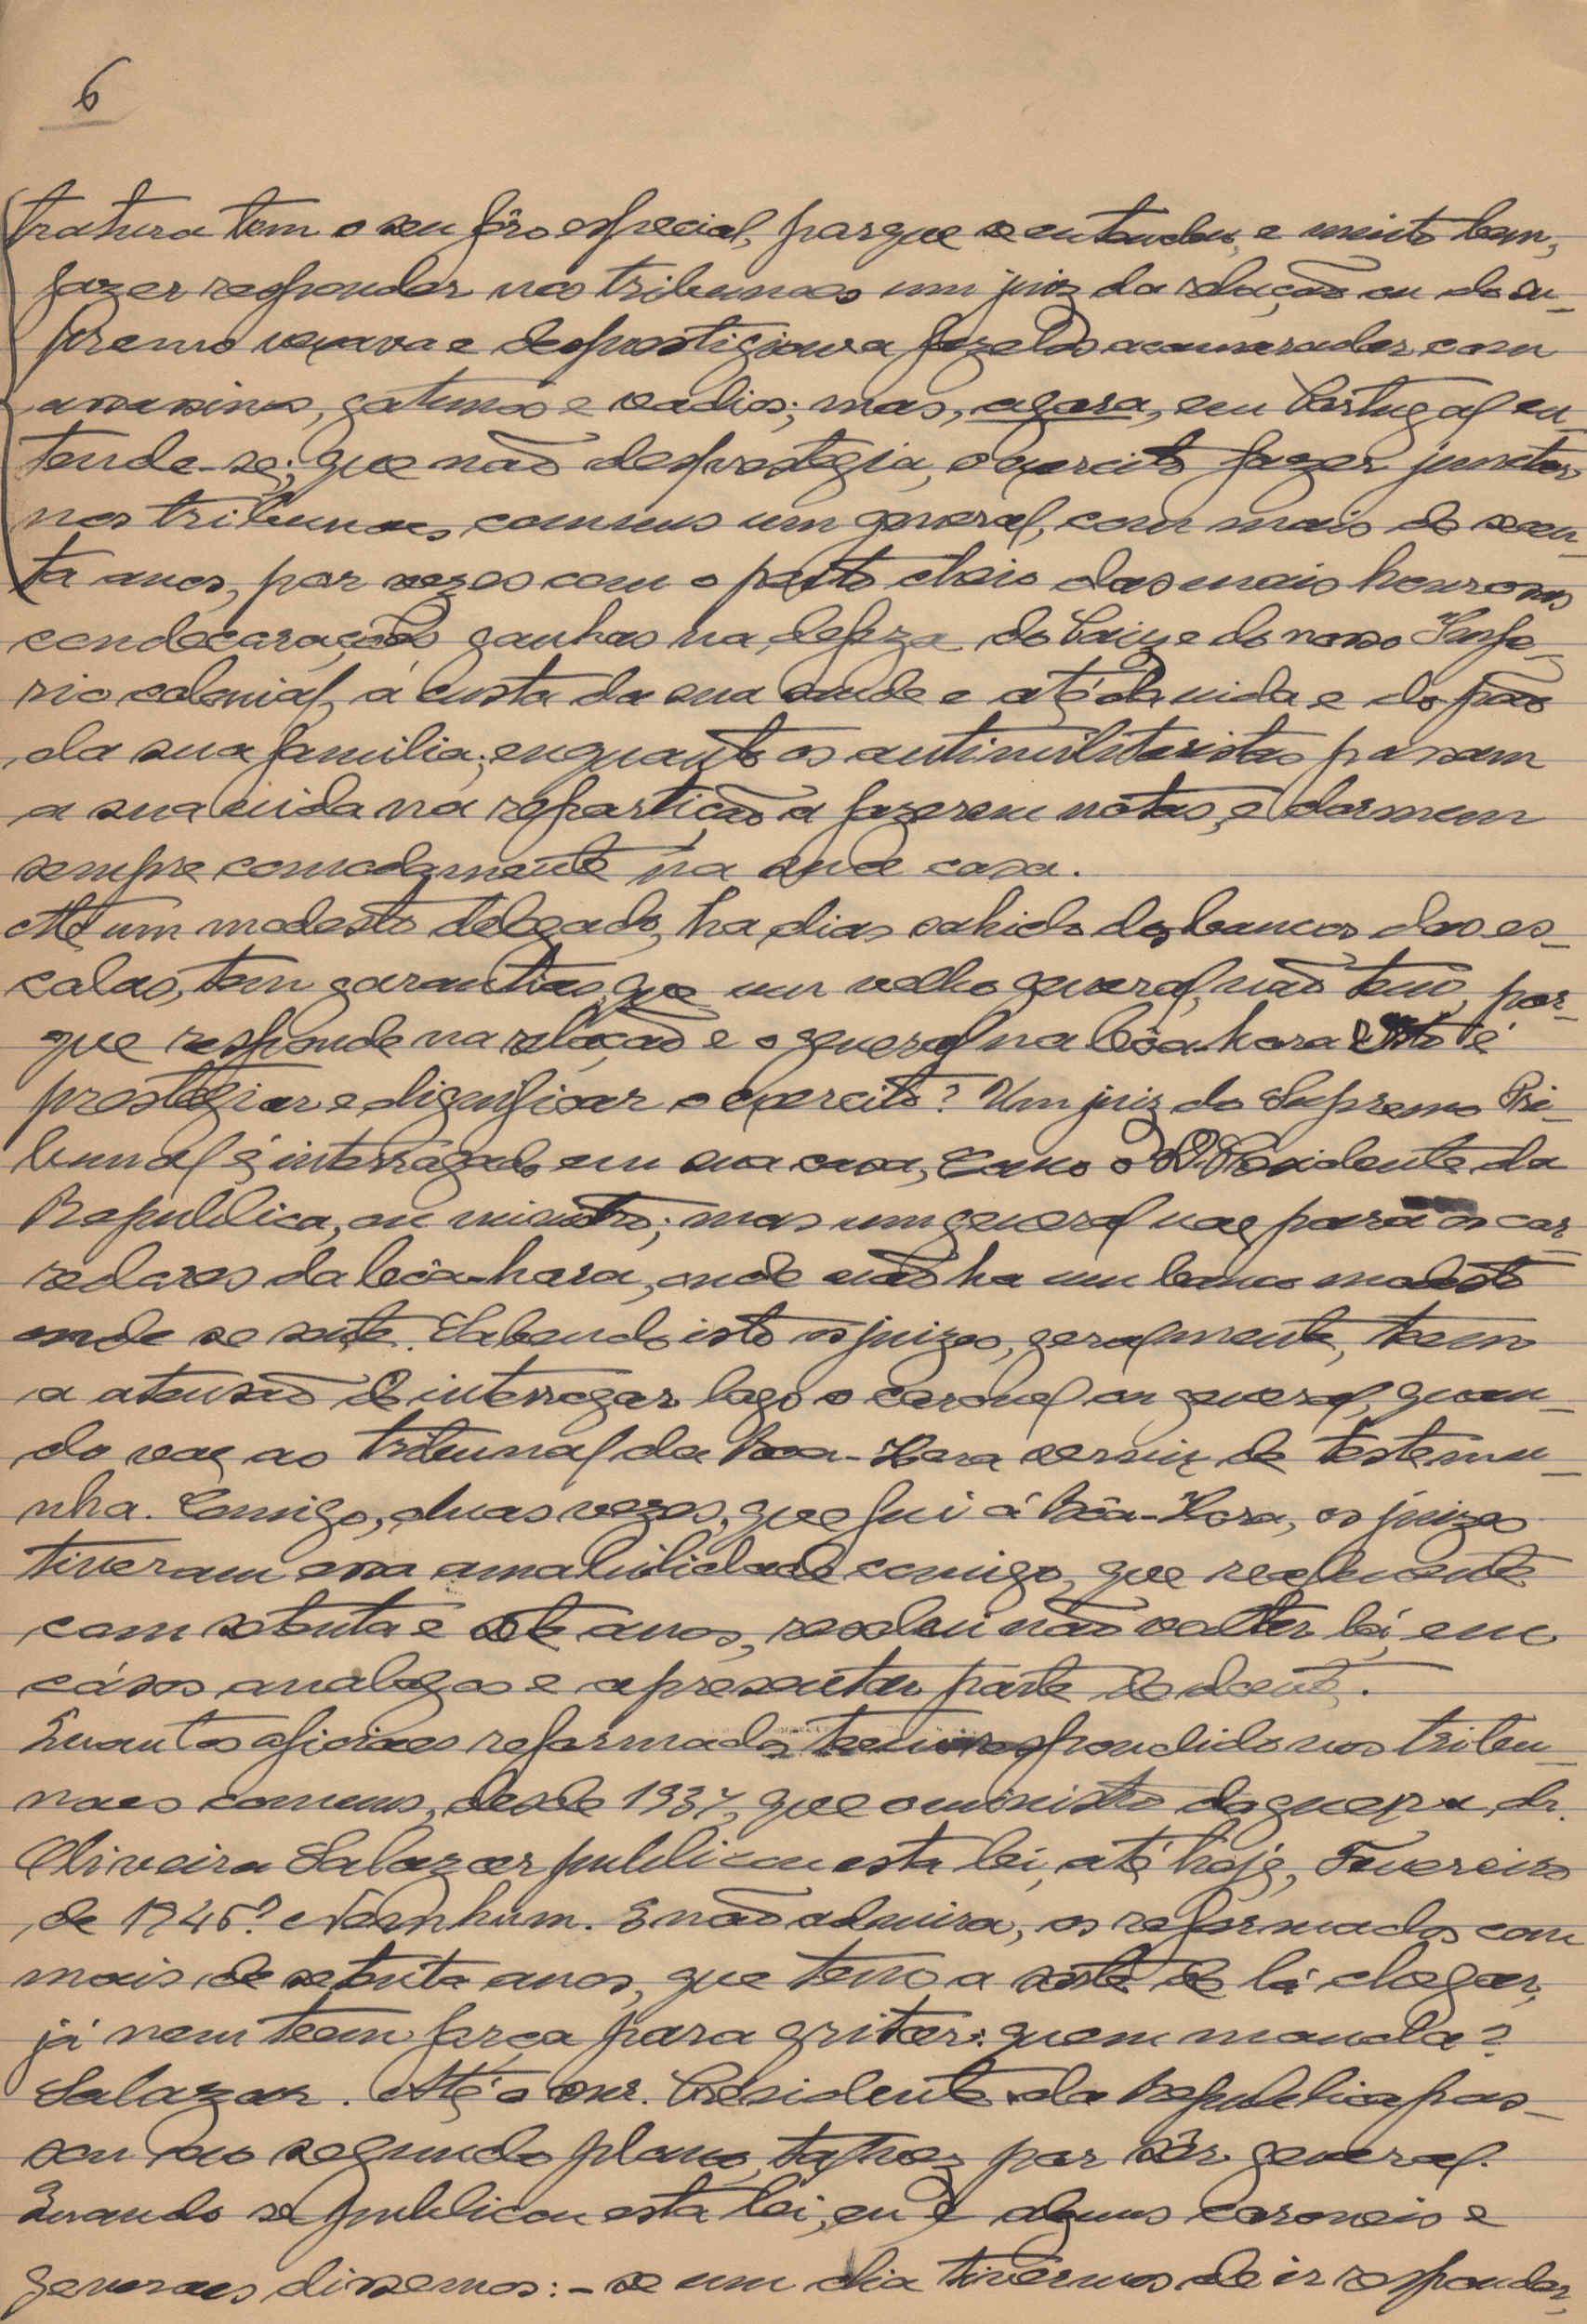 6
tratura tem o seu fôro especial, porque se entendeu, e muito bem,
fazer responder nos tribunaes um juiz da relação ou do su-
premo vexava e desprestigiava fazel-os acamaradar com
assassinos, gatunos e vadios; mas, agora, em Portugal en-
tende-se; que não desprestigia, o exercito fazer
nos tribunaes communs um general, com mais de sesen-
ta anos, por vezes com o peito cheio das mais honrosas
condecorações ganhas na defeza do Paiz e do nosso Impe-
rio colonial, á custa da sua saude e até da vida e do pão
da sua familia; enquanto os antimilitaristas passam
a sua vida na repartição a fazerem nótas, e dormem
sempre comodamente na sua casa.
Até um modesto delegado, ha dias sahido dos bancos das es-
colas, tem garantias, que um velho general, não tem, por-
que responde na relação e o general na bôa-hora. Isto é
prestigiar e dignificar o exercito? Um juiz do Supremo Tri-
bunal é interrogado em sua casa, como o Presidente da
Republica, ou ministro; mas um general vae para os cor-
redores da bôa-hora, onde não ha um banco modesto
onde se sente. Sabendo isto os juizes, geralmente, teem
a atensão de interrogar logo o coronel ou general, quan-
do vae ao tribunal da Boa-Hora servir de testemu-
nha. Comigo, duas vezes, que fui á Bôa-Hora, os juizes
tiveram essa amabilidade comigo, que realmente
com setenta e sete anos, resolvi não voltar lá, em
cásos analogos e apresentar parte de doente.
Quantos oficiaes reformados teem respondido nos tribu-
naes comuns, desde 1937, que o ministro da guerra, dr.
Oliveira Salazar publicou esta lei, até hoje, Fevereiro
de 1946? Nemhum. E não admira, os reformados com
mais de setenta anos, que teem a sorte de lá chegar,
já nem teem força para gritar: quem manda?
Salazar. Até o snr. Presidente da Republica pas-
sou ao segundo plano, talvez por sêr general.
Quando se publicou esta lei, eu e alguns coroneis e
generaes dissemos: - se um dia tivérmos de ir responder,